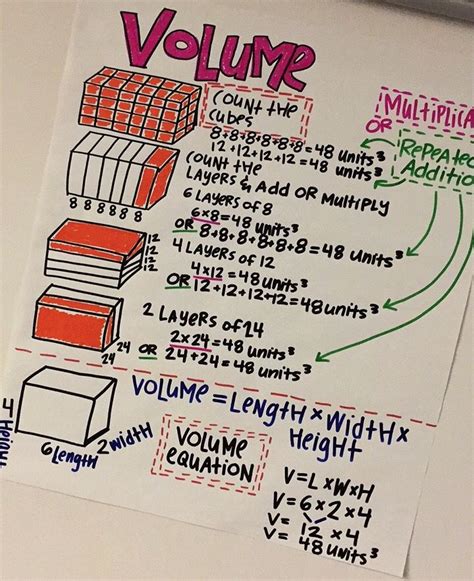 VOLUME
COUNT THE
CUBES
8+8+8+8+8+8=48 UNITS³
12+12+12+12=48 UNITS³
MULTIPLICA
OR
REPEATED
ADDITION
COUNT THE
LAYERS & ADD OR MULTIPLY
8 8 8 8 8 8
6 LAYERS OF 8
6×8=48 UNITS³
OR 8+8+8+8+8+8=48 UNITS³
12
12
12
12
4 LAYERS OF 12
4×12=48 UNITS³
OR 12+12+12+12=48 UNITS³
2 LAYERS OF 24
2×24=48 UNITS³
OR 24+24=48 UNITS³
24
24
VOLUME=LENGTH×WIDTH×
HEIGHT
4 HEIGHT
6 LENGTH
2 WIDTH
VOLUME
EQUATION
V=L×W×H
V=6×2×4
V=12×4
V=48 UNITS³